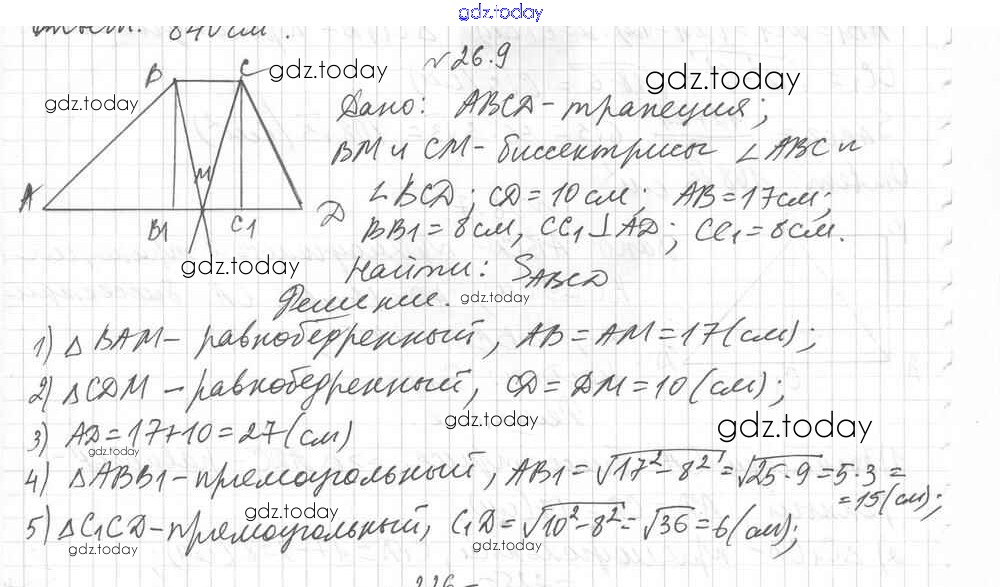 gdz.today
Ответ: 840 см².
№26.9
B C gdz.today
gdz.today
gdz.today
Дано: ABCD - трапеция;
BM и CM - биссектрисы ∠ABC и
∠BCD; CD = 10 см; AB = 17 см;
BB1 = 8 см, CC1 ⊥ AD; CC1 = 8 см.
A M D
B1 C1
gdz.today
Найти: SABCD
gdz.today
Решение.
1) △ BAM - равнобедренный, AB = AM = 17 (см);
2) △CDM - равнобедренный, CD = DM = 10 (см);
gdz.today
gdz.today
3) AD = 17 + 10 = 27 (см)
gdz.today
4) △ABB1 - прямоугольный, AB1 = √17² - 8² = √25 · 9 = 5 · 3 =
= 15 (см);
gdz.today
5) △C1CD - прямоугольный, C1D = √10² - 8² = √36 = 6 (см);
gdz.today
gdz.today